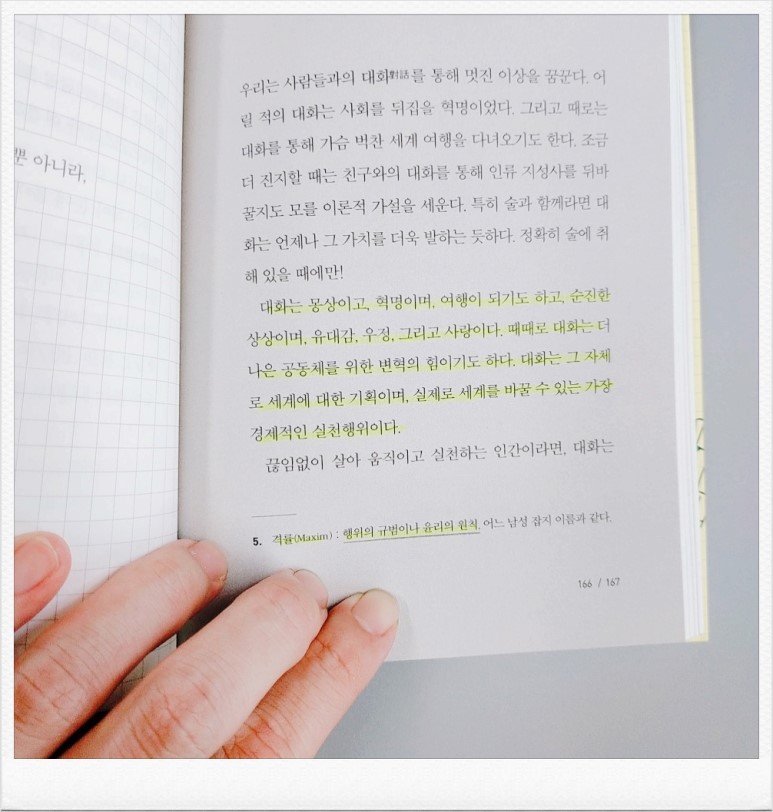 뿐 아니라,
우리는 사람들과의 대화對話를 통해 멋진 이상을 꿈꾼다. 어
릴 적의 대화는 사회를 뒤집을 혁명이었다. 그리고 때로는
대화를 통해 가슴 벅찬 세계 여행을 다녀오기도 한다. 조금
더 진지할 때는 친구와의 대화를 통해 인류 지성사를 뒤바
꿀지도 모를 이론적 가설을 세운다. 특히 술과 함께라면 대
화는 언제나 그 가치를 더욱 발하는 듯하다. 정확히 술에 취
해 있을 때에만!
대화는 몽상이고, 혁명이며, 여행이 되기도 하고, 순진한
상상이며, 유대감, 우정, 그리고 사랑이다. 때때로 대화는 더
나은 공동체를 위한 변혁의 힘이기도 하다. 대화는 그 자체
로 세계에 대한 기획이며, 실제로 세계를 바꿀 수 있는 가장
경제적인 실천행위이다.
끊임없이 살아 움직이고 실천하는 인간이라면, 대화는
5. 격률(Maxim) : 행위의 규범이나 윤리의 원칙. 어느 남성 잡지 이름과 같다.
166 / 167